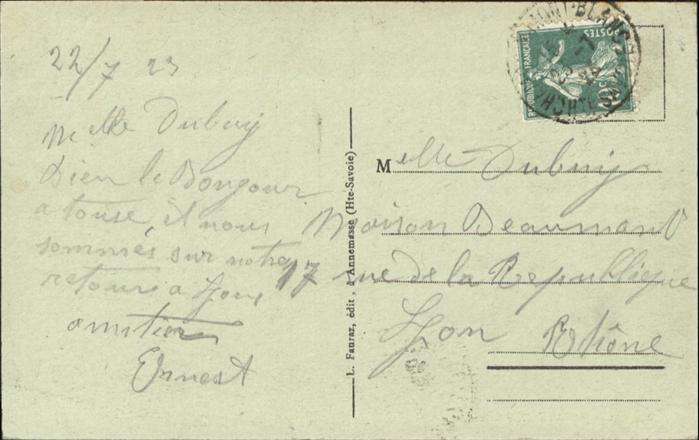 22/7 23
Melle Dubuy
Bien le Bonjour
a touse, et nous
sommes sur notre
retour a Lyon
amitiers
Ernest
L. Fauraz, édit., à Annemasse (Hte-Savoie)
Melle Dubuy
Maison Beaumont
17 rue de la Republique
Lyon Rhône
POSTES
FRANÇAISE
MONT-BLANC